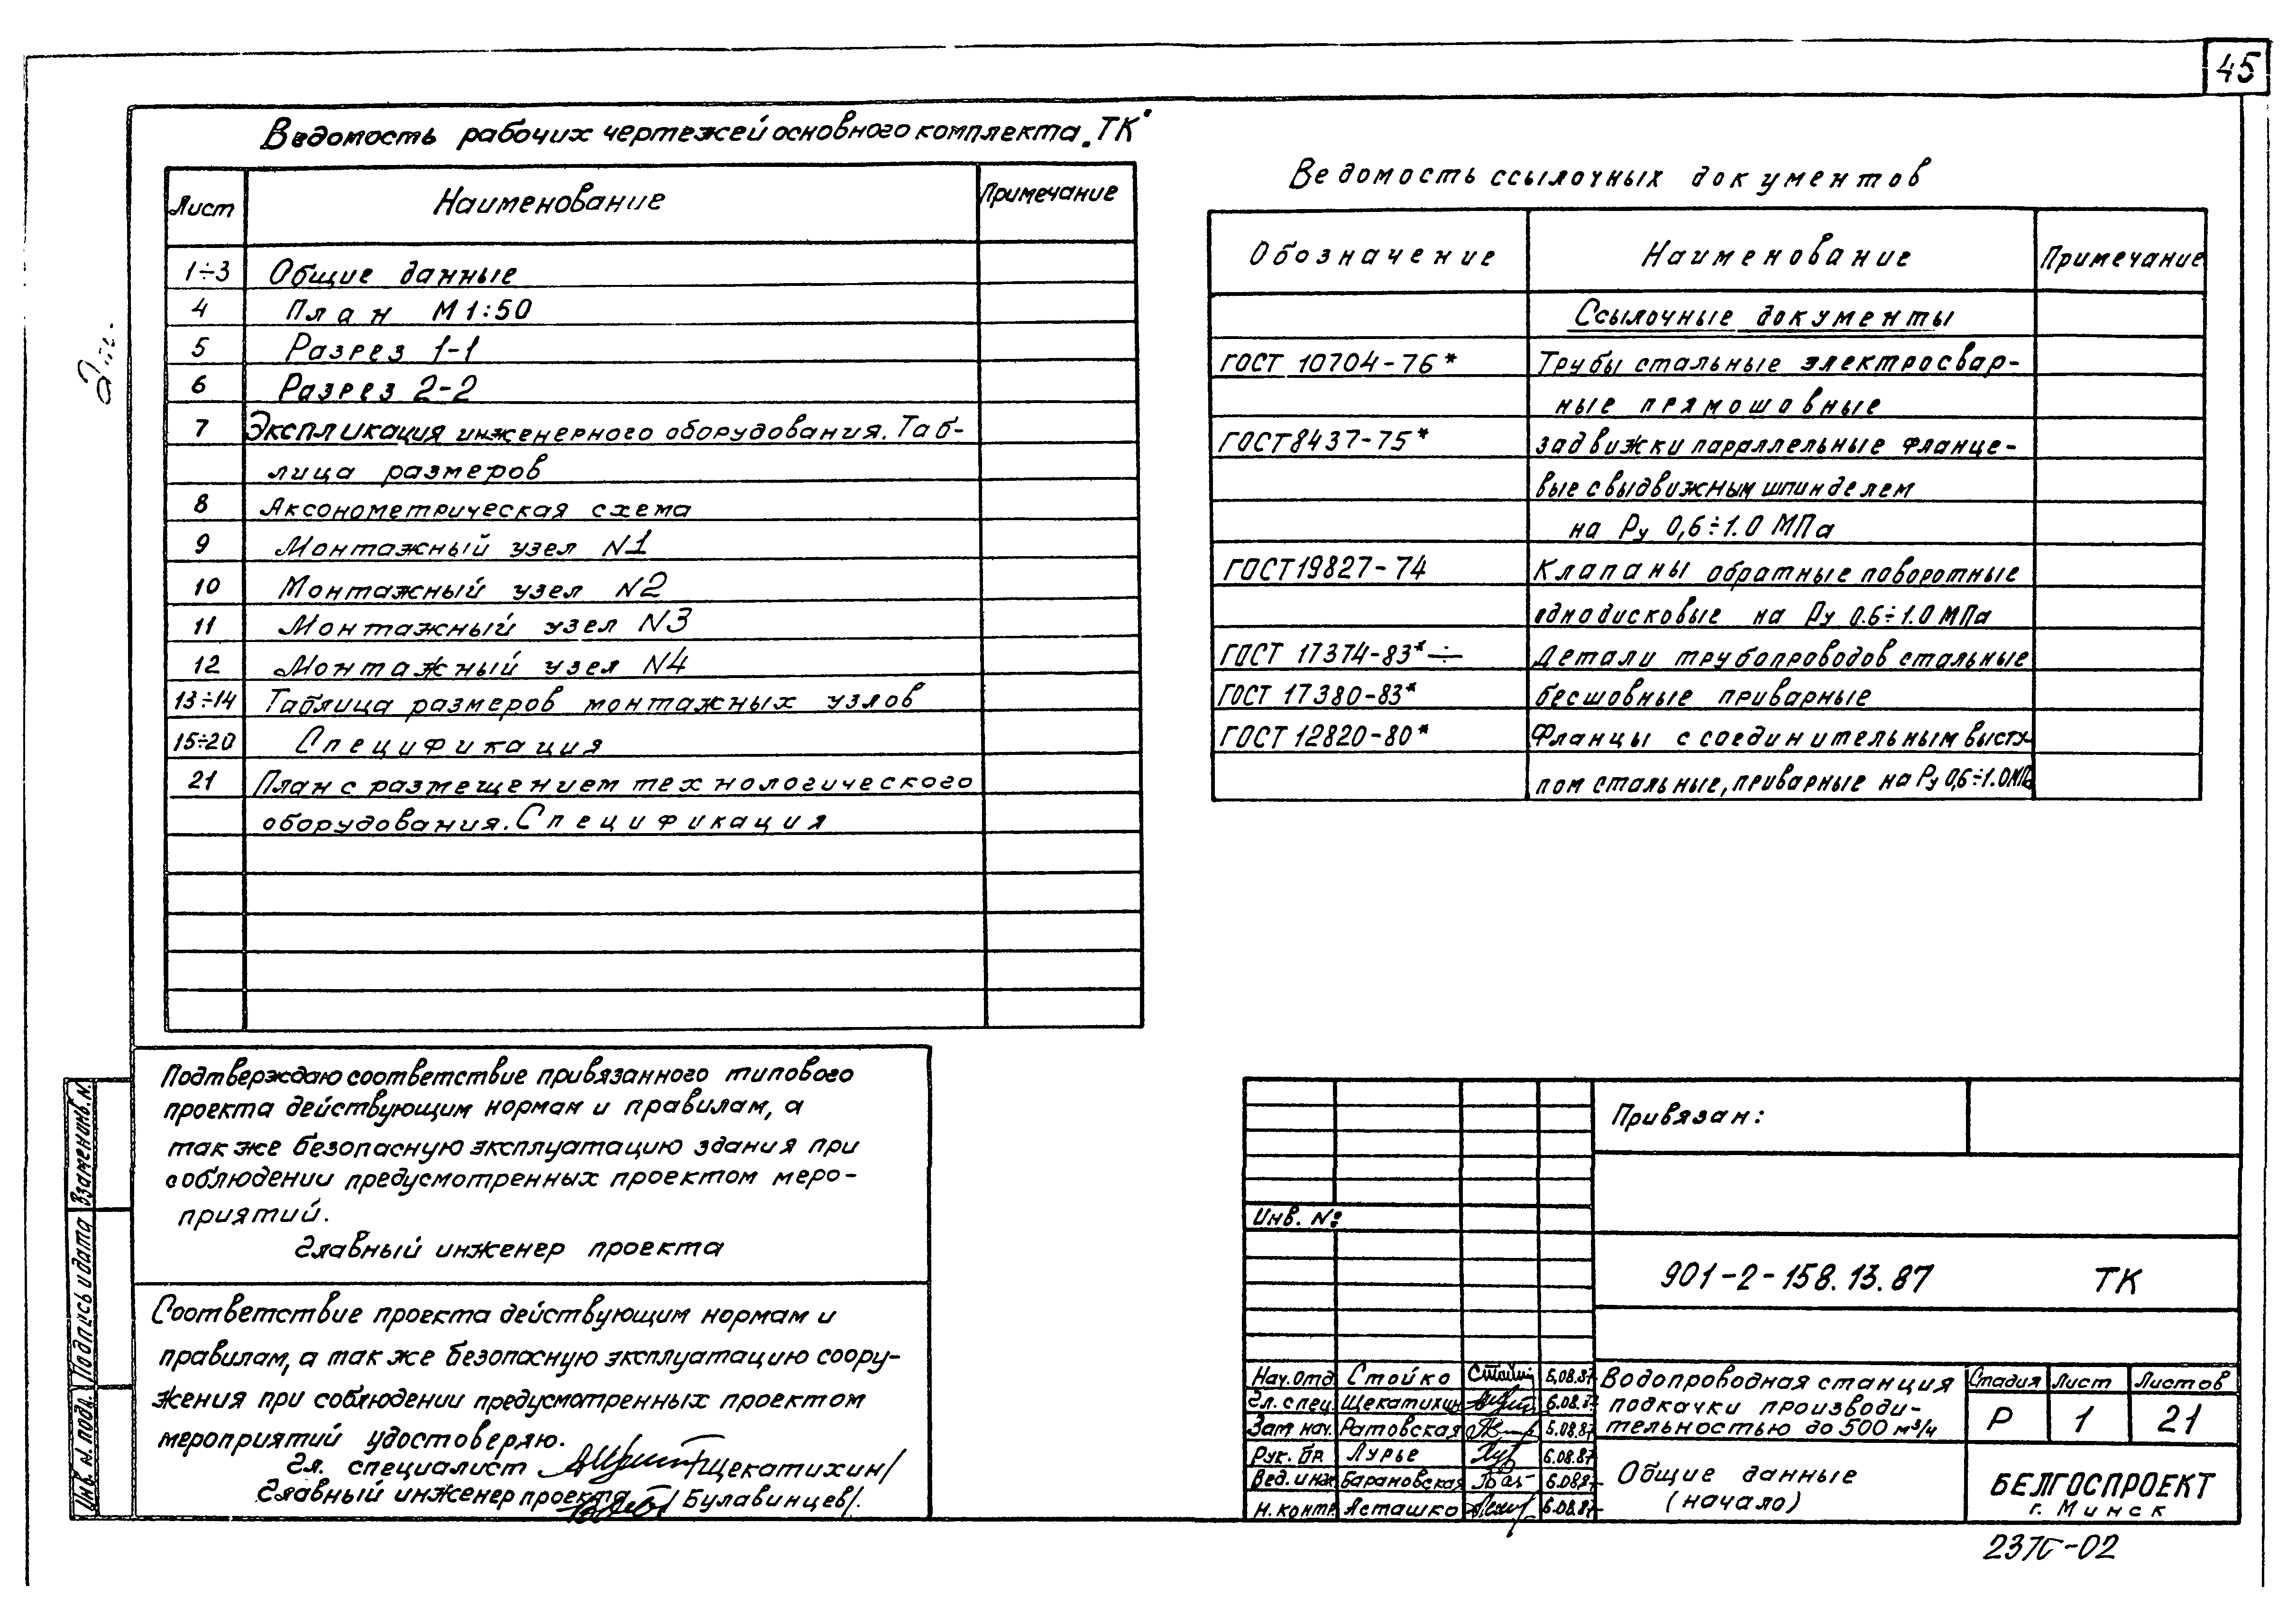 45
Ведомость рабочих чертежей основного комплекта „ТК"
Лист Наименование Примечание
1÷3 Общие данные
4 План М 1:50
5 Разрез 1-1
6 Разрез 2-2
7 Экспликация инженерного оборудования. Таб-
лица размеров
8 Аксонометрическая схема
9 Монтажный узел N1
10 Монтажный узел N2
11 Монтажный узел N3
12 Монтажный узел N4
13÷14 Таблица размеров монтажных узлов
15÷20 Спецификация
21 План с размещением технологического
оборудования. Спецификация
Ведомость ссылочных документов
Обозначение Наименование Примечание
Ссылочные документы
ГОСТ 10704-76* Трубы стальные электросвар-
ные прямошовные
ГОСТ 8437-75* задвижки параллельные фланце-
вые с выдвижным шпинделем
на Ру 0,6÷1.0 МПа
ГОСТ 19827-74 Клапаны обратные поворотные
однодисковые на Ру 0.6÷1.0 МПа
ГОСТ 17374-83*÷ Детали трубопроводов стальные
ГОСТ 17380-83* бесшовные приварные
ГОСТ 12820-80* Фланцы с соединительным высту-
пом стальные, приварные на Ру 0,6÷1.0 МПа
Подтверждаю соответствие привязанного типового
проекта действующим нормам и правилам, а
так же безопасную эксплуатацию здания при
соблюдении предусмотренных проектом меро-
приятий.
Главный инженер проекта
Соответствие проекта действующим нормам и
правилам, а так же безопасную эксплуатацию соору-
жения при соблюдении предусмотренных проектом
мероприятий удостоверяю.
Гл. специалист /Щекатихин/
Главный инженер проекта /Булавинцев/.
Взамен инв. N.
Подпись и дата
Инв. N. подл.
Привязан:
Инв. N:
901-2-158.13.87 ТК
Нач. отд. Стойко 6.08.87
Гл. спец. Щекатихин 6.08.87
Зам нач. Ратовская 5.08.87
Рук. бр. Лурье 6.08.87
Вед. инж. Барановская 6.08.87
Н. контр. Асташко 6.08.87
Водопроводная станция
подкачки производи-
тельностью до 500 м³/ч
Стадия Лист Листов
Р 1 21
Общие данные
(начало)
БЕЛГОСПРОЕКТ
г. Минск